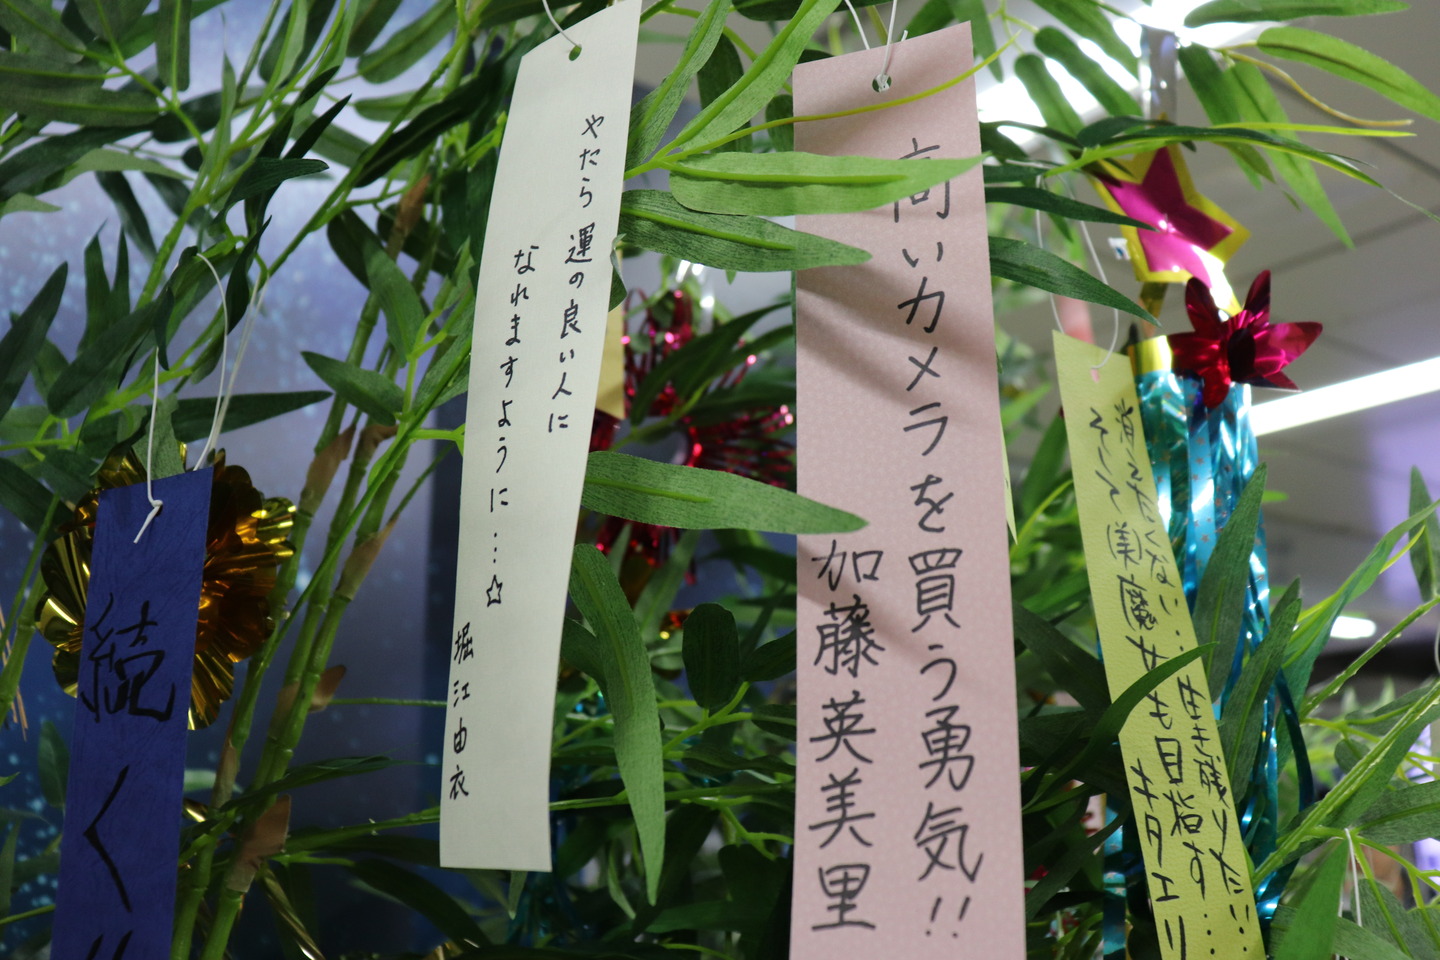 続く!!
やたら運の良い人に
なれますように…☆
堀江由衣
高いカメラを買う勇気!!
加藤英美里
消えたくない…生き残りたい!!
そして(美)魔女も目指す…
キタエリ